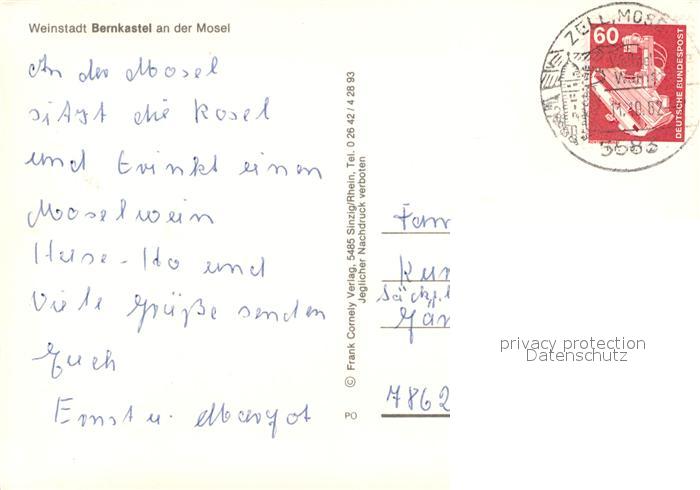 Weinstadt Bernkastel an der Mosel
An der Mosel
sitzt die Rosel
und trinkt einen
Moselwein
und
Viele Grüße senden
Euch
Ernst u. Margot
© Frank Cornely Verlag, 5485 Sinzig/Rhein, Tel. 0 26 42 / 4 28 93
Jeglicher Nachdruck verboten
PO
ZELL, MOSEL
60
DEUTSCHE BUNDESPOST
5583
Fam
Kur
Gär
7862
privacy protection
Datenschutz